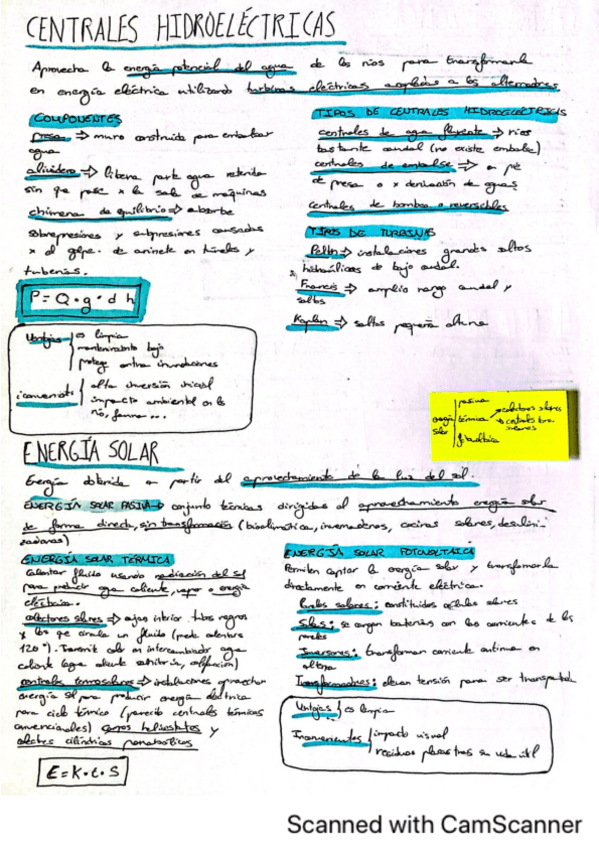 CENTRALES HIDROELÉCTRICAS
Aprovecha la energía potencial del agua de los ríos para transformarla
en energía eléctrica utilizando turbinas eléctricas acopladas a los alternadores
COMPONENTES
presa → muro construido para embalsar
agua
aliviadero → libera parte agua retenida
sin que pase x la sala de máquinas
chimenea de equilibrio → absorbe
sobrepresiones y subpresiones causadas
x el golpe de ariete en túneles y
tuberías.
P = Q · g · d h
Ventajas es limpia
mantenimiento bajo
protege contra inundaciones
inconvenientes alta inversión inicial
impacto ambiental en los
río, fauna...
TIPOS DE CENTRALES HIDROELÉCTRICAS
centrales de agua fluyente → ríos
bastante caudal (no existe embalse)
centrales de embalse → a pie
de presa o x derivación de aguas
centrales de bombeo o reversibles
TIPOS DE TURBINAS
Pelton → instalaciones grandes saltos
hidráulicos de bajo caudal.
Francis → amplio rango caudal y
saltos
Kaplan → saltos pequeña altura
energía solar
pasiva
térmica → colectores solares
→ centrales termosolares
fotovoltaica
ENERGÍA SOLAR
Energía obtenida a partir del aprovechamiento de la luz del sol.
ENERGÍA SOLAR PASIVA → conjunto técnicas dirigidas al aprovechamiento energía solar
de forma directa, sin transformación (bioclimática, invernaderos, cocinas solares, desalini-
zadoras)
ENERGÍA SOLAR TÉRMICA
Calentar fluido usando radiación del sol
para producir agua caliente, vapor o energía
eléctrica.
colectores solares → cajas interior tubos negros
x los que circula un fluido (puede calentarse
120°). Transmite calor en intercambiador agua
caliente (agua caliente sanitaria, calefacción)
centrales termosolares → instalaciones aprovechan
energía sol para producir energía eléctrica
para ciclo térmico (parecido centrales térmicas
convencionales) campos heliostatos y
colectores cilíndricos parabólicos
E = K · t · S
ENERGÍA SOLAR FOTOVOLTAICA
Permiten captar la energía solar y transformarla
directamente en corriente eléctrica.
Paneles solares: constituidos células solares
se cargan baterías con las corrientes de los
paneles
Inversores: transforman corriente continua en
alterna
Transformadores: elevan tensión para ser transportada
Ventajas es limpia
Inconvenientes impacto visual
residuos placas tras su vida útil
Scanned with CamScanner